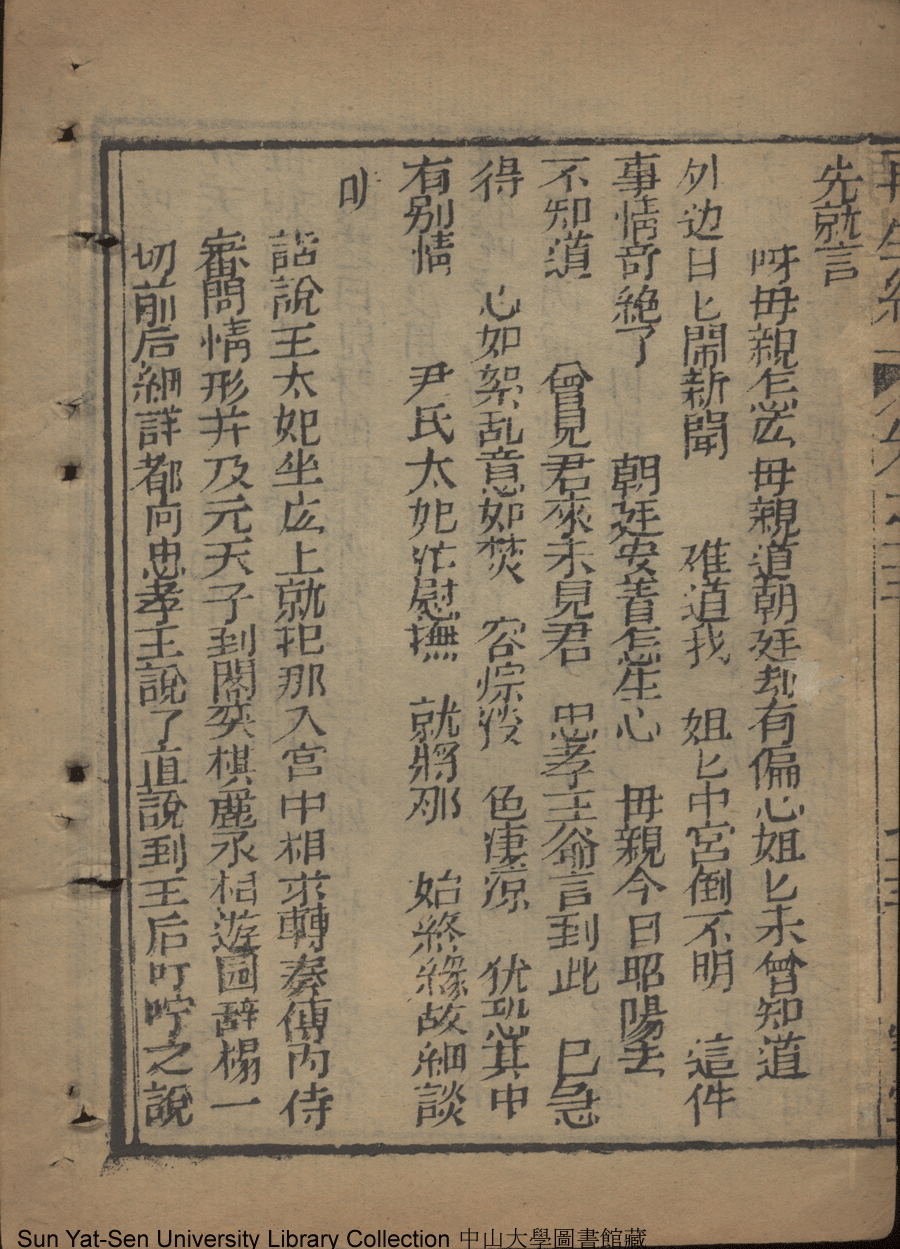 先就言
呀母親怎庅母親道朝廷刼有偏心姐匕未曾知道
外边日匕鬧新聞　难道我　姐匕中宮倒不明　這件
事情奇絶了　朝廷安着怎生心　母親今日昭陽去
不知道　曾見君來未見君　忠孝王爺言到此　巳急
得　心如絮乱意如焚　容惊淡　色凄凉　犹恐其中
有别情　尹氏太妃茫慰撫　就將那　始終緣故細談
叩
話說王太妃坐庅上就把那入宮中相求轉奏傳內侍
審問情形并及元天子到閣奕棋麗丞相遊園辭榻一
切前后細詳都向忠孝王說了直說到王后叮咛之說
Sun Yat-Sen University Library Collection 中山大學圖書館藏